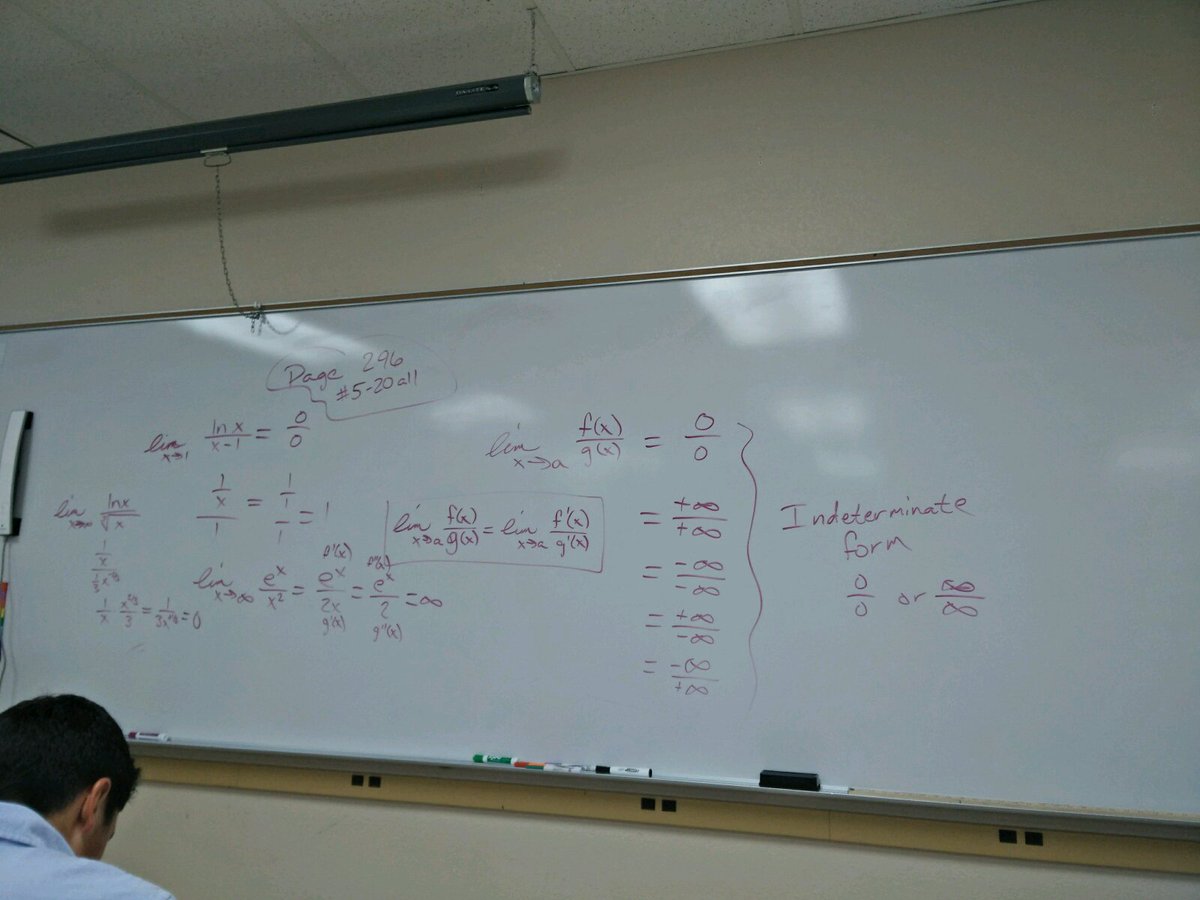 Page 296
#5-20 all
lim x→1 ln x / x-1 = 0/0
1/x / 1 = 1/1 / 1 = 1
lim x→∞ ln x / ∛x
1/x / 1/3 x^-2/3
1/x · x^2/3 / 3 = 1 / 3x^1/3 = 0
f'(x) f''(x)
lim x→∞ e^x / x² = e^x / 2x = e^x / 2 = ∞
g'(x) g''(x)
lim x→a f(x) / g(x) = 0/0
= +∞ / +∞
= -∞ / -∞
= +∞ / -∞
= -∞ / +∞
lim x→a f(x) / g(x) = lim x→a f'(x) / g'(x)
Indeterminate
form
0/0 or ∞/∞